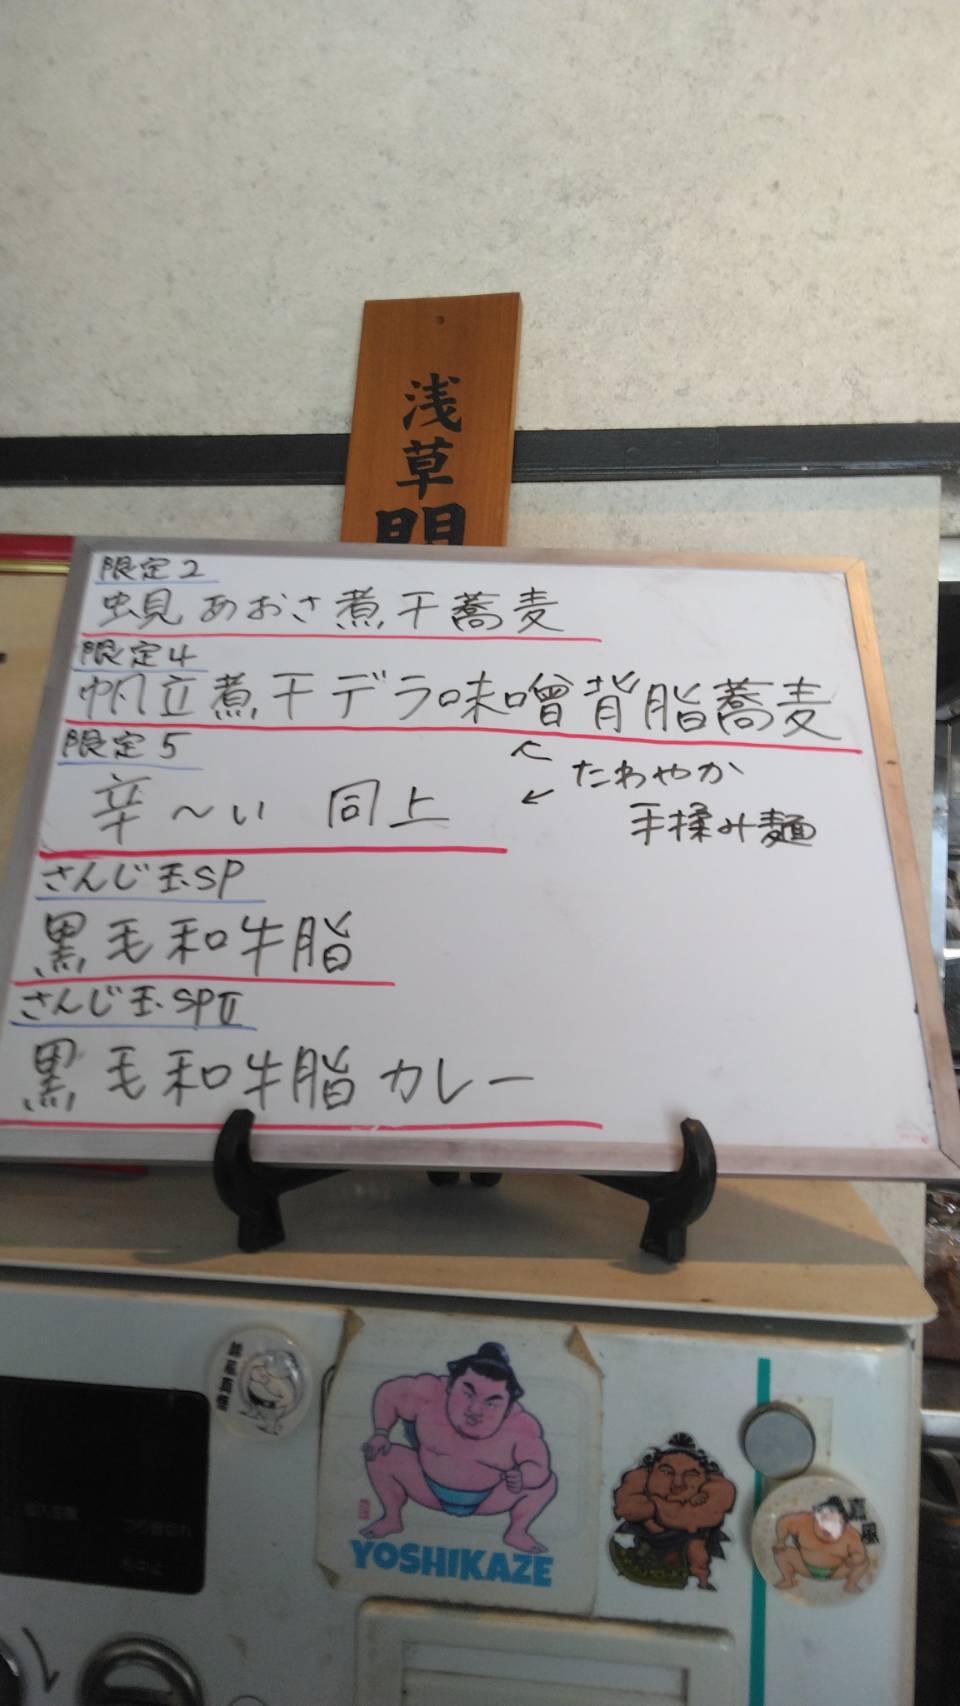 浅草開
限定2
蜆あおさ煮干蕎麦
限定4
帆立煮干デラ味噌背脂蕎麦
限定5
辛〜い 同上
← たわやか
← 手揉み麺
さんじ玉SP
黒毛和牛脂
さんじ玉SPⅡ
黒毛和牛脂カレー
YOSHIKAZE
嘉風